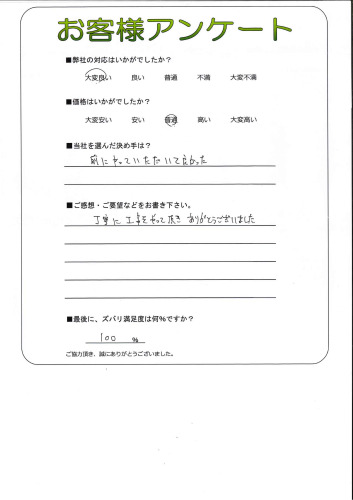 お客様アンケート
■弊社の対応はいかがでしたか?
大変良い 良い 普通 不満 大変不満
■価格はいかがでしたか?
大変安い 安い 普通 高い 大変高い
■当社を選んだ決め手は?
前にやっていただいて良かった
■ご感想・ご要望などをお書き下さい。
丁寧に工事をやって頂きありがとうございました
■最後に、ズバリ満足度は何%ですか?
100 %
ご協力頂き、誠にありがとうございました。